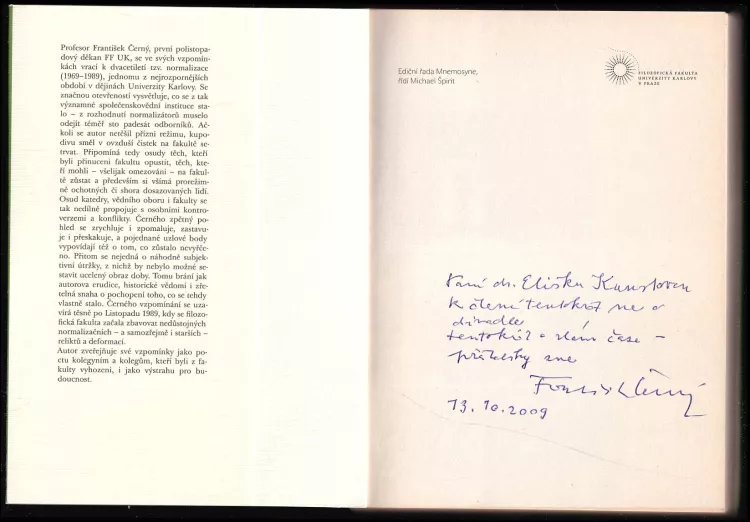 Profesor František Černý, první polistopa-
dový děkan FF UK, se ve svých vzpomín-
kách vrací k dvacetiletí tzv. normalizace
(1969–1989), jednomu z nejrozpornějších
období v dějinách Univerzity Karlovy. Se
značnou otevřeností vysvětluje, co se z tak
významné společenskovědní instituce sta-
lo – z rozhodnutí normalizátorů muselo
odejít téměř sto padesát odborníků. Ač-
koli se autor netěšil přízni režimu, kupo-
divu směl v ovzduší čistek na fakultě se-
trvat. Připomíná tedy osudy těch, kteří
byli přinuceni fakultu opustit, těch, kte-
ří mohli – všelijak omezováni – na fakul-
tě zůstat a především si všímá prorežim-
ně ochotných či shora dosazovaných lidí.
Osud katedry, vědního oboru i fakulty se
tak nedílně propojuje s osobními kontro-
verzemi a konflikty. Černého zpětný po-
hled se zrychluje i zpomaluje, zastavu-
je i přeskakuje, a pojednané uzlové body
vypovídají též o tom, co zůstalo nevyřče-
no. Přitom se nejedná o náhodné subjek-
tivní útržky, z nichž by nebylo možné se-
stavit ucelený obraz doby. Tomu brání jak
autorova erudice, historické vědomí i zře-
telná snaha o pochopení toho, co se tehdy
vlastně stalo. Černého vzpomínání se uza-
vírá těsně po Listopadu 1989, kdy se filozo-
fická fakulta začala zbavovat nedůstojných
normalizačních – a samozřejmě i starších –
reliktů a deformací.
Autor zveřejňuje své vzpomínky jako po-
ctu kolegyním a kolegům, kteří byli z fa-
kulty vyhozeni, i jako výstrahu pro bu-
doucnost.
Ediční řada Mnemosyne,
řídí Michael Špirit
FILOZOFICKÁ FAKULTA
UNIVERZITY KARLOVY
V PRAZE
Paní dr. Elišku
k čtení tentokrát ne o
divadle
tentokrát o zlém čase –
František Černý
13. 10. 2009